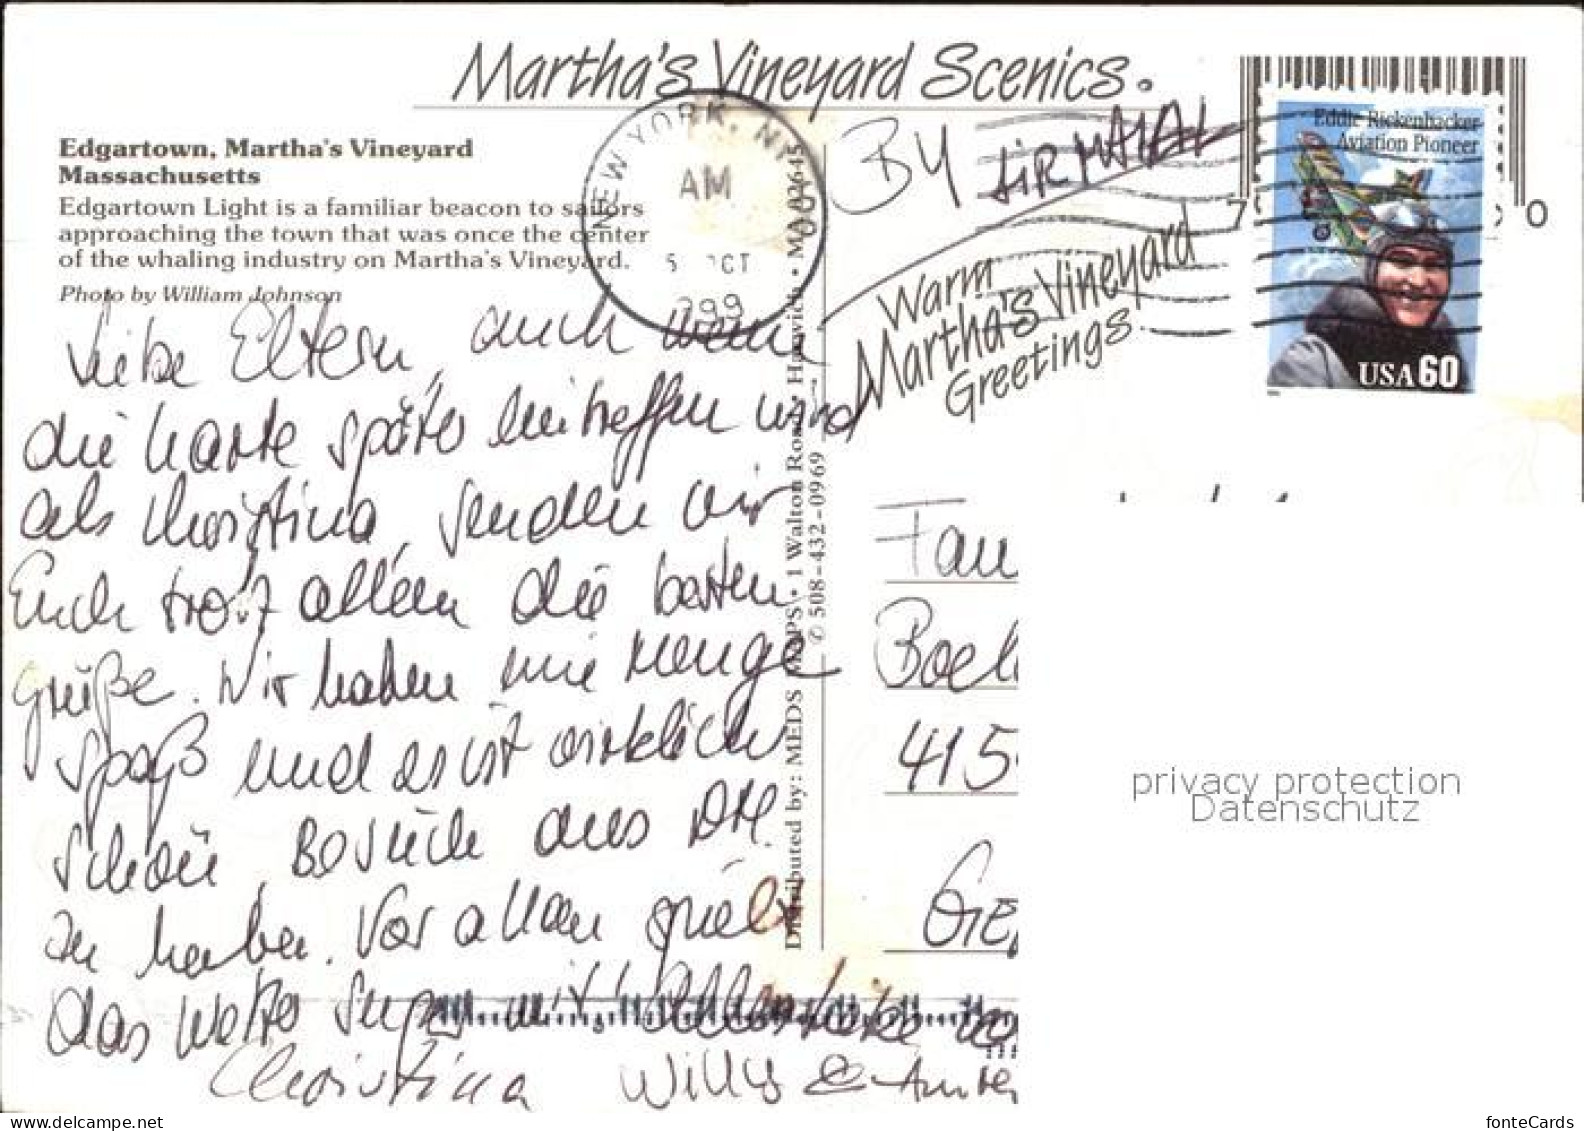 Martha's Vineyard Scenics.
Edgartown, Martha's Vineyard
Massachusetts
Edgartown Light is a familiar beacon to sailors
approaching the town that was once the center
of the whaling industry on Martha's Vineyard.
Photo by William Johnson
Liebe Eltern, auch wenn
die Karte später eintreffen wird
als Christina, senden wir
Euch trotz allem die besten
Grüße. Wir haben eine Menge
Spaß und es ist wirklich
schön, Besuch aus DM.
zu haben. Vor allem spielt
das Wetter super mit!
Christina Willy &
NEW YORK, NY
AM
5 OCT
Distributed by: MEDS MAPS • 1 Walton Road • Harwich • MA 02645
✆ 508-432-0969
BY AIR MAIL
Warm
Martha's Vineyard
Greetings.
Eddie Rickenbacker
Aviation Pioneer
USA 60
7 0
Fam
Boel
415
Ger
privacy protection
Datenschutz
https://www.delcampe.net
fonteCards